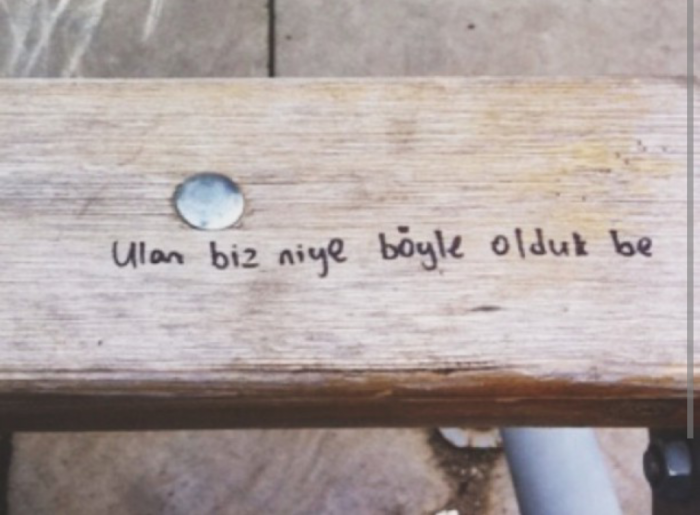 Ulan biz niye böyle olduk be